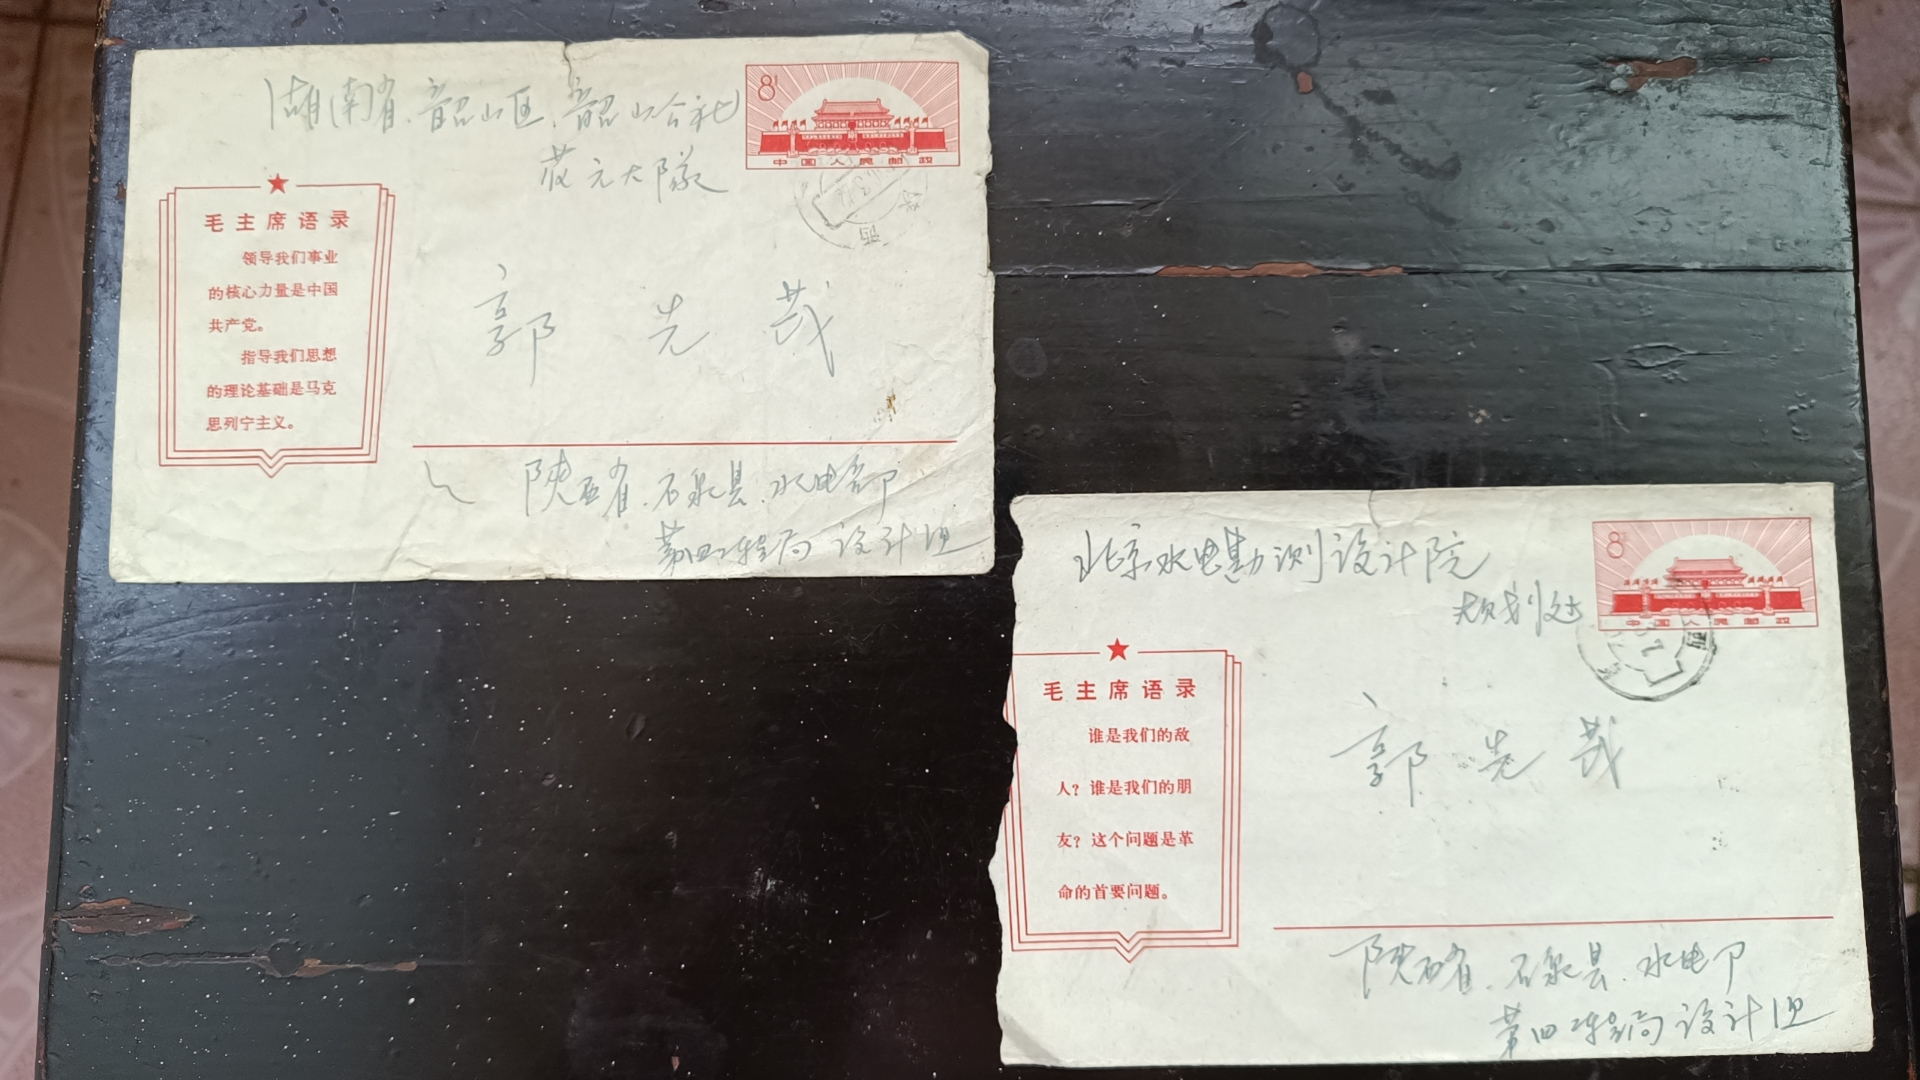 湖南省.韶山区.韶山公社
8
中国人民邮政
大队
毛主席语录
领导我们事业
的核心力量是中国
共产党。
指导我们思想
的理论基础是马克
思列宁主义。
郭先哉
陕西省.石泉县.水电部
第四工程局设计组
北京水电勘测设计院
规划处
8
中国人民邮政
毛主席语录
谁是我们的敌
人?谁是我们的朋
友?这个问题是革
命的首要问题。
郭先哉
陕西省.石泉县.水电卩
第四工程局设计组